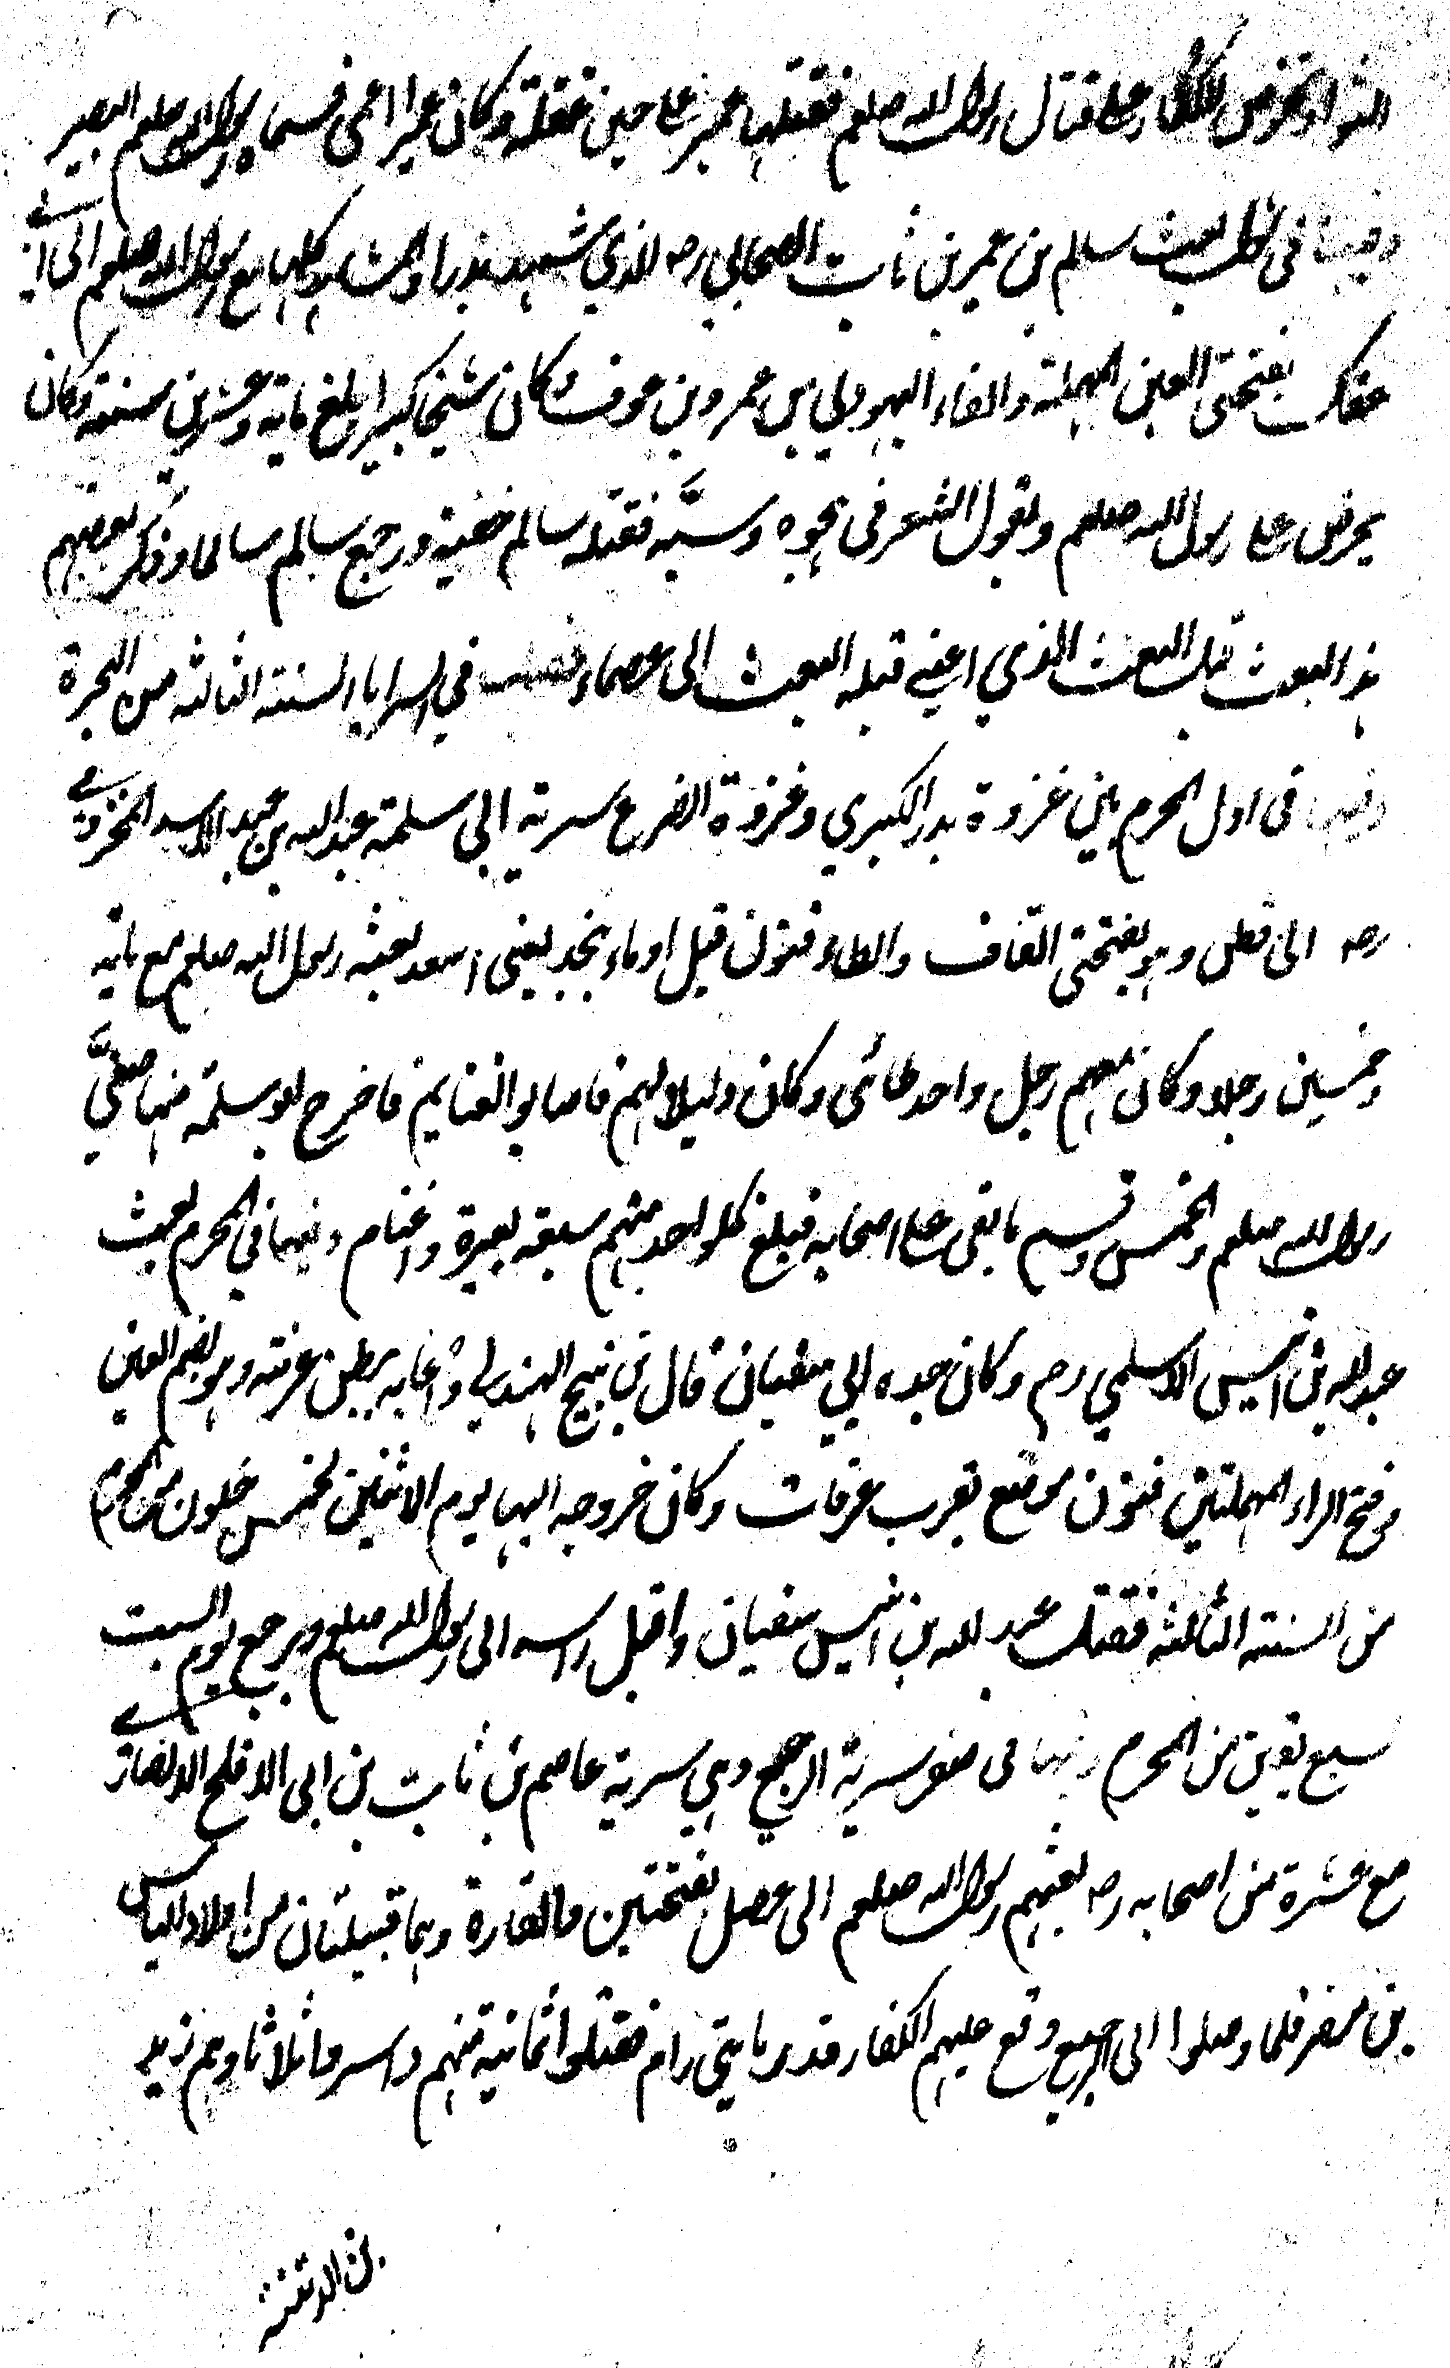 الشواد تحرض الكفار على قتال رسول الله صلعم فقتلها عمير على حين غفلة وكان عميرا اعمى فسماه رسول الله صلعم البصير
وفيها في شوال بعث سالم بن عمير بن ثابت الصحابي رضه الذي شهد بدرا والمشاهد كلها مع رسول الله صلعم الى ابي
عفك بفتحتي العين المهملة والفاء اليهودي من عمرو بن عوف كان شيخا كبيرا بلغ ماية وعشرين سنة وكان
يحرض على رسول الله صلعم ويقول الشعر في هجوه وسبّه فقتله سالم خفية ورجع سالم سالما وذكر بعضهم
هذا البعث قبل البعث الذي اعني قبله البعث الى عصماء فصل في السرايا السنة الثالثة من الهجرة
وفيها في اول المحرم بين غزوة بدر الكبرى وغزوة الفرع سرية ابي سلمة عبد الله بن عبد الاسد المخزومي
رضه الى قطن وهو بفتحتي القاف والطاء فنون قيل او ماء بنجد لبني اسد بعثه رسول الله صلعم مع ماية
وخمسين رجلا وكان معهم رجل واحد طائي وكان دليلا لهم فاصابوا الغنايم فاخرج ابو سلمة منها صفيّ
رسول الله صلعم والخمس وقسم ما بقي على اصحابه فبلغ كل واحد منهم سبعة بعيرة واغنام وفيها في المحرم بعث
عبد الله بن انيس الاسلمي رضه وكان جده الى سفيان قال بن نبيح الهذلي واغابه ببطن عرنة وهو بضم العين
وفتح الراء المهملتين فنون موضع بقرب عرفات وكان خروجه اليها يوم الاثنين لخمس خلون من المحرم
من السنة الثالثة فقتل عبد الله بن انيس سفيان واقبل راسه الى رسول الله صلعم ورجع يوم السبت
سبع بقين من المحرم وفيها في صفر سرية الرجيع وهي سرية عاصم بن ثابت بن ابي الاقلح الانصاري
مع عشرة من اصحابه رضه بعثهم رسول الله صلعم الى عضل بفتحتين والقارة وهما قبيلتان من اولاد الياس
بن مضر فلما وصلوا الى الرجيع وقع عليهم الكفار قدر مايتي رام فقتلوا ثمانية منهم واسروا ثلاثا وهم زيد
بن الدثنة